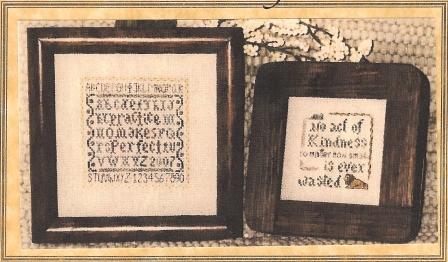 ABCDEFGHIJKLMNOPQR
abcdefghij
klpracticem
nomakespq
rsPerfecttu
VWXYZ2007
STUVWXYZ1234567890
No act of
Kindness
no matter how small
is ever
wasted